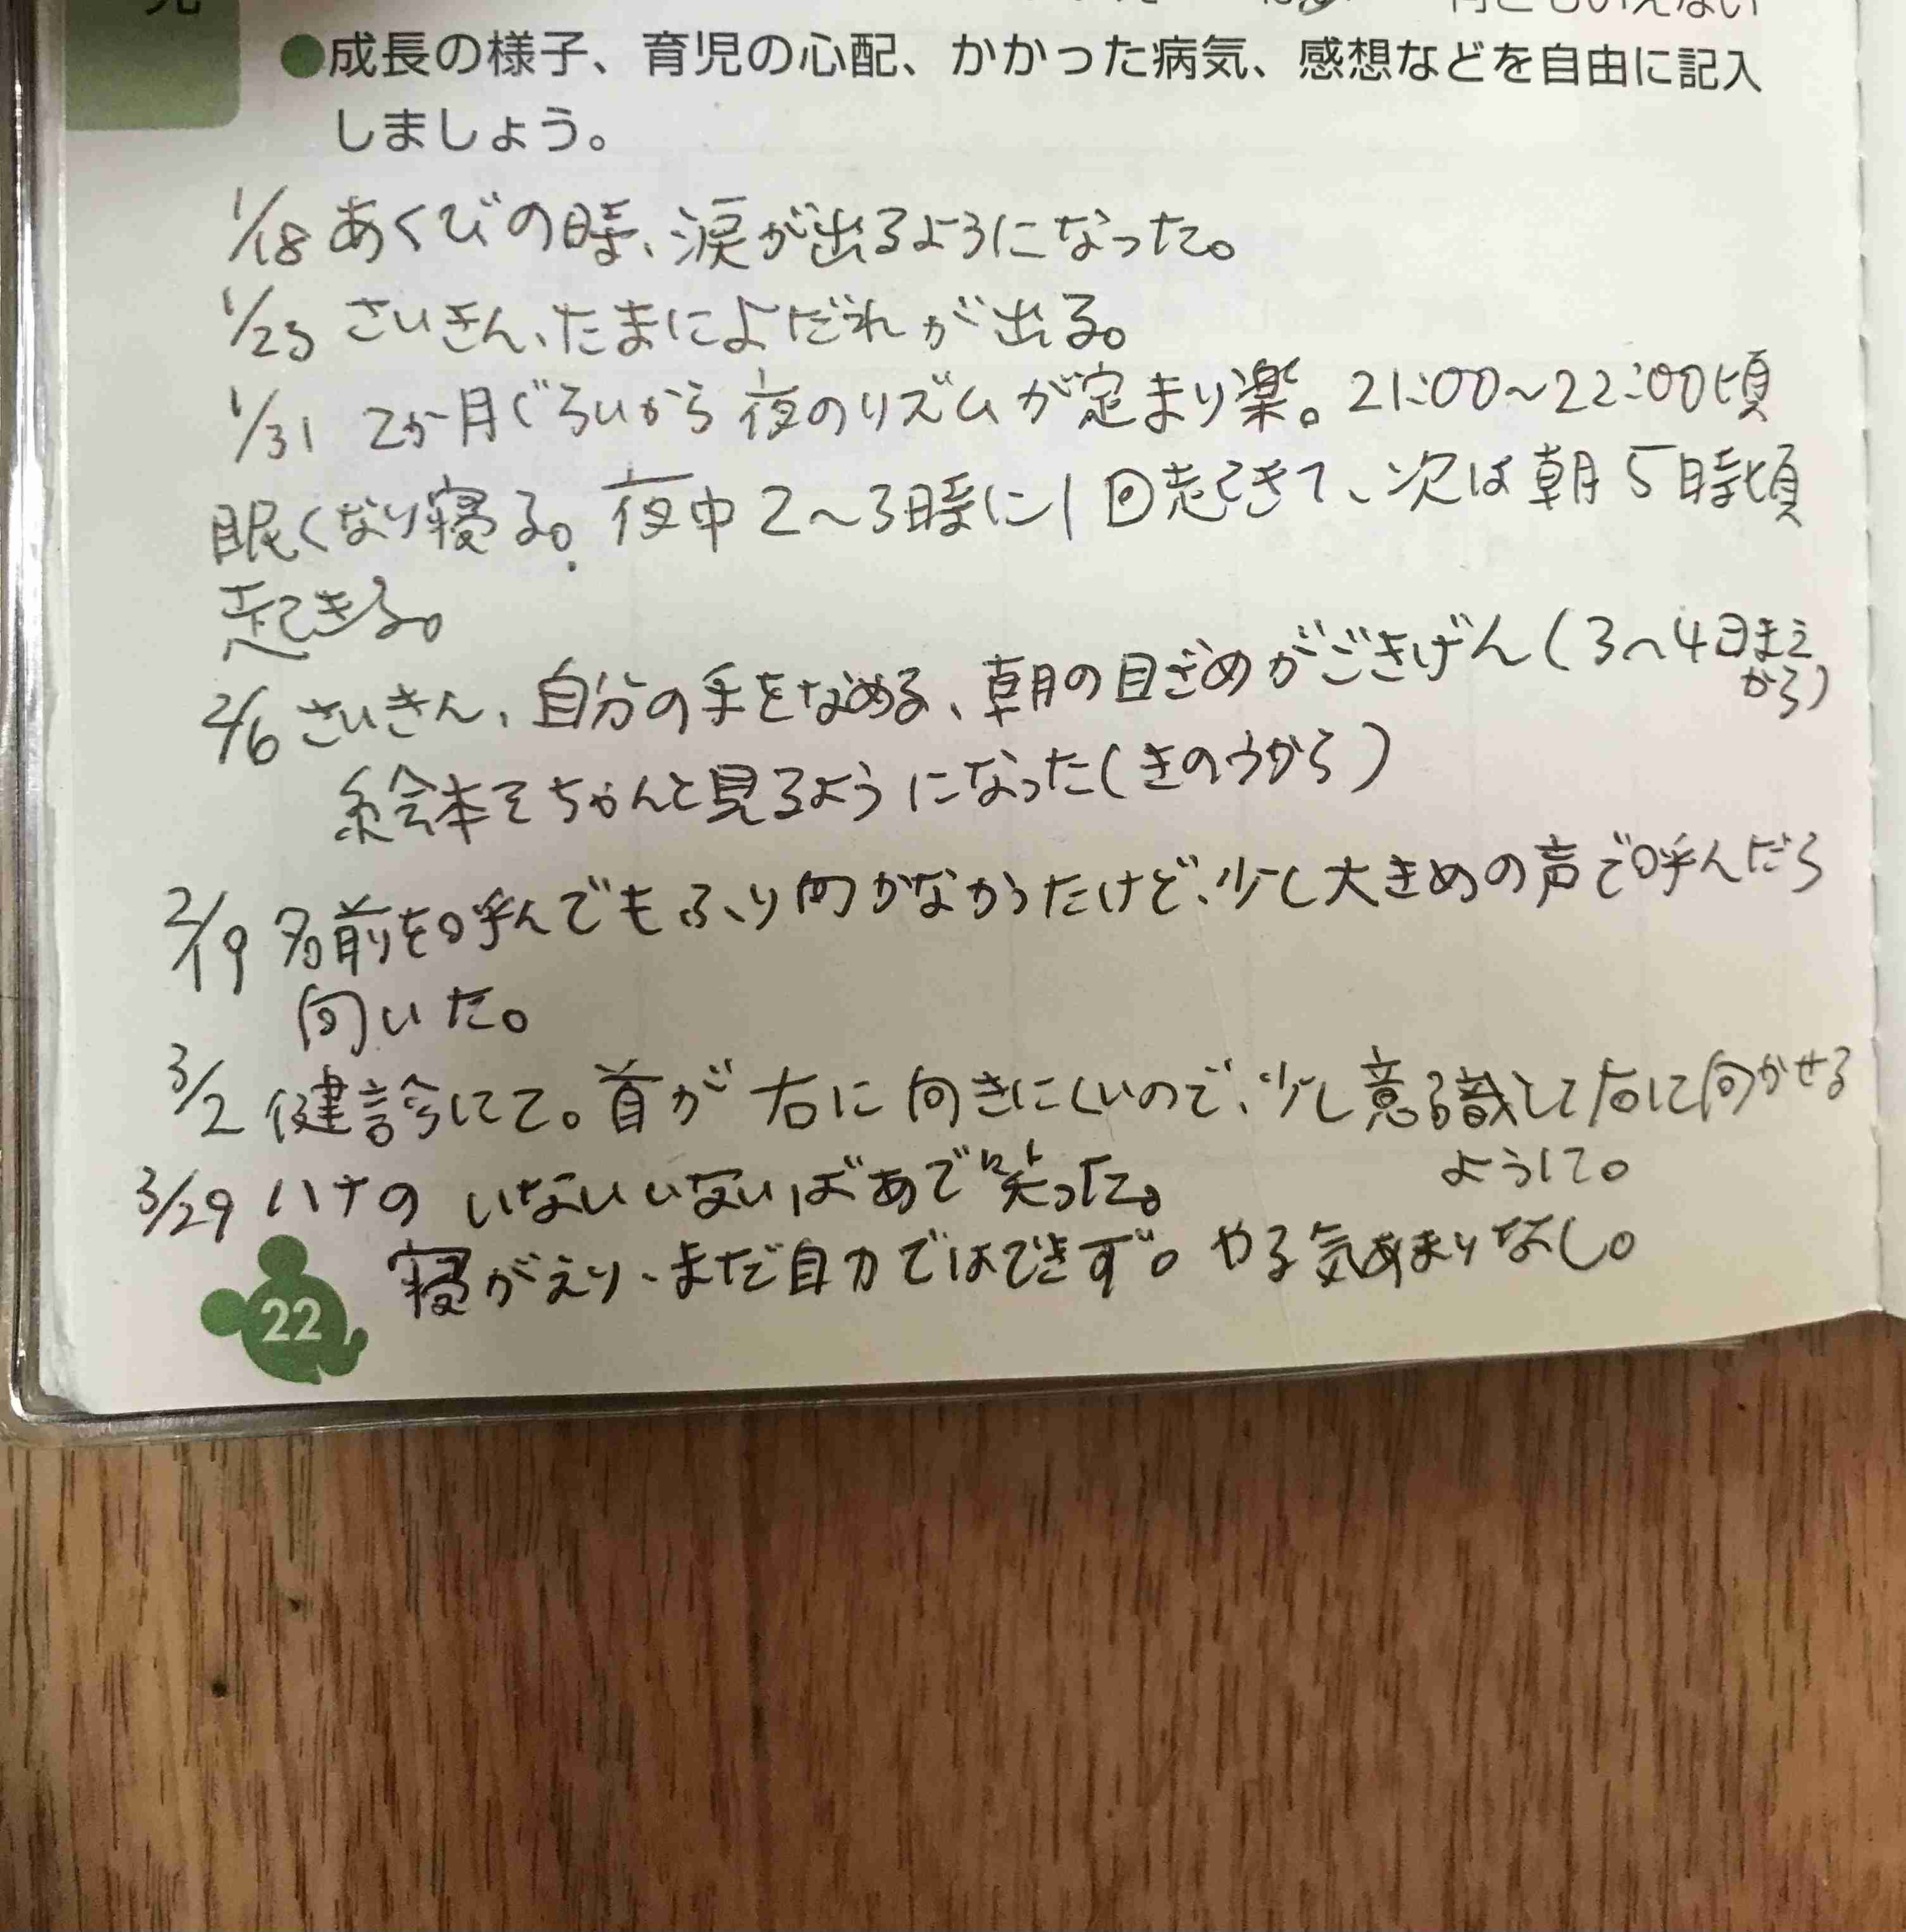 何ともいえない
●成長の様子、育児の心配、かかった病気、感想などを自由に記入
しましょう。
1/18 あくびの時、涙が出るようになった。
1/23 さいきん、たまによだれが出る。
1/31 2か月ぐらいから夜のリズムが定まり楽。21:00～22:00頃
眠くなり寝る。夜中2～3時に1回起きて、次は朝5時頃
起きる。
2/6 さいきん、自分の手をなめる、朝の目ざめがごきげん(3～4日まえ
から)
絵本をちゃんと見るようになった(きのうから)
2/19 名前を呼んでもふり向かなかったけど、少し大きめの声で呼んだら
向いた。
3/2 健診にて。首が右に向きにくいので、少し意識して右に向かせる
ように。
3/29 ハナの いないいないばあで笑った。
寝がえり、まだ自力ではできず。やる気あまりなし。
22